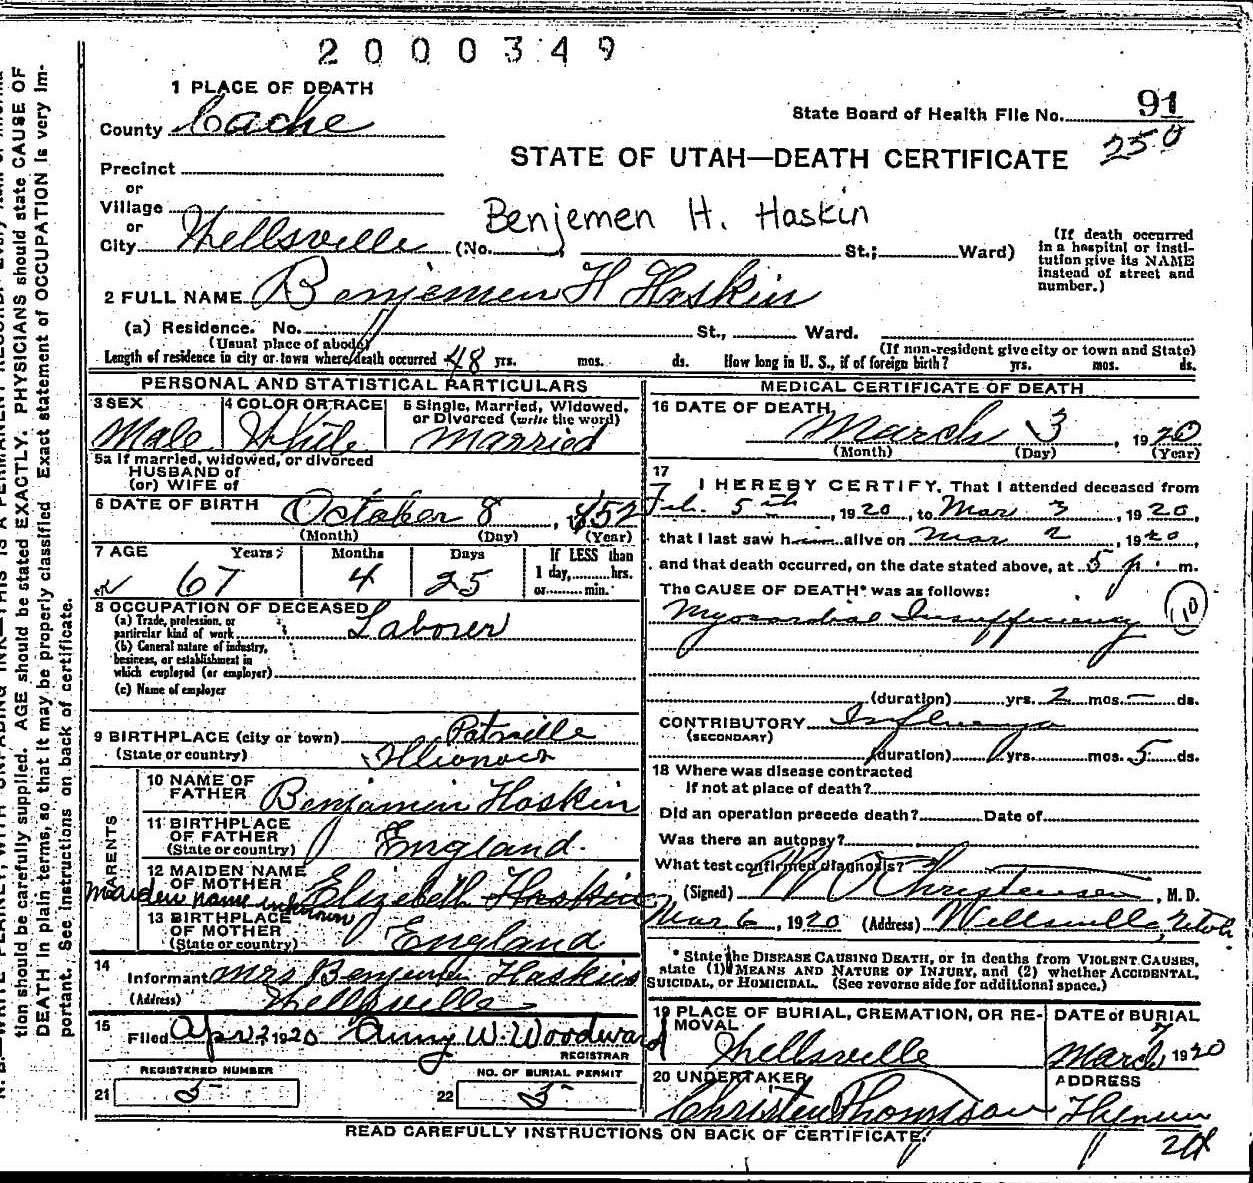 2000349
1 PLACE OF DEATH
County Cache
State Board of Health File No. 91
250
STATE OF UTAH—DEATH CERTIFICATE
Precinct
or
Village
or
City Wellsville (No. St.; Ward)
Benjemen H. Haskin
(If death occurred in a hospital or institution give its NAME instead of street and number.)
2 FULL NAME Benjemen H Haskin
(a) Residence. No. St., Ward.
(Usual place of abode) (If non-resident give city or town and State)
Length of residence in city or town where death occurred 48 yrs. mos. ds. How long in U. S., if of foreign birth? yrs. mos. ds.
PERSONAL AND STATISTICAL PARTICULARS
3 SEX
Male
4 COLOR OR RACE
White
5 Single, Married, Widowed, or Divorced (write the word)
Married
5a If married, widowed, or divorced
HUSBAND of
(or) WIFE of
6 DATE OF BIRTH October 8, 1852
(Month) (Day) (Year)
7 AGE Years Months Days If LESS than
67 4 25 1 day, hrs.
or min.
8 OCCUPATION OF DECEASED
(a) Trade, profession, or
particular kind of work Laborer
(b) General nature of industry,
business, or establishment in
which employed (or employer)
(c) Name of employer
9 BIRTHPLACE (city or town)
(State or country)
PARENTS
10 NAME OF
FATHER Benjamin Haskin
11 BIRTHPLACE
OF FATHER
(State or country) England.
12 MAIDEN NAME
OF MOTHER Elizabeth Haskin
Maiden name unknown
13 BIRTHPLACE
OF MOTHER
(State or country) England
14
Informant Mrs Benjemen Haskins
(Address) Wellsville
15
Filed Apr 1920 Anny W. Woodward
REGISTRAR
REGISTERED NUMBER
21 5
NO. OF BURIAL PERMIT
22 5
MEDICAL CERTIFICATE OF DEATH
16 DATE OF DEATH
March 3, 1920
(Month) (Day) (Year)
17
I HEREBY CERTIFY, That I attended deceased from
Feb. 5th, 1920, to Mar 3, 1920,
that I last saw him alive on Mar 2, 1920,
and that death occurred, on the date stated above, at 5 p. m.
The CAUSE OF DEATH* was as follows:
Myocardial Insufficiency
110
(duration) yrs. 2 mos. — ds.
CONTRIBUTORY Influenza
(SECONDARY)
(duration) yrs. mos. 5 ds.
18 Where was disease contracted
If not at place of death?
Did an operation precede death? Date of
Was there an autopsy?
What test confirmed diagnosis?
(Signed) Christensen, M. D.
Mar 6, 1920 (Address) Wellsville, Utah
* State the DISEASE CAUSING DEATH, or in deaths from VIOLENT CAUSES,
state (1) MEANS AND NATURE OF INJURY, and (2) whether ACCIDENTAL,
SUICIDAL, or HOMICIDAL. (See reverse side for additional space.)
19 PLACE OF BURIAL, CREMATION, OR RE-
MOVAL
Wellsville
DATE of BURIAL
March 7, 1920
20 UNDERTAKER
Thomson
ADDRESS
Hyrum
READ CAREFULLY INSTRUCTIONS ON BACK OF CERTIFICATE.
tion should be carefully supplied. AGE should be stated EXACTLY. PHYSICIANS should state CAUSE OF
DEATH in plain terms, so that it may be properly classified Exact statement of OCCUPATION is very im-
portant. See instructions on back of certificate.